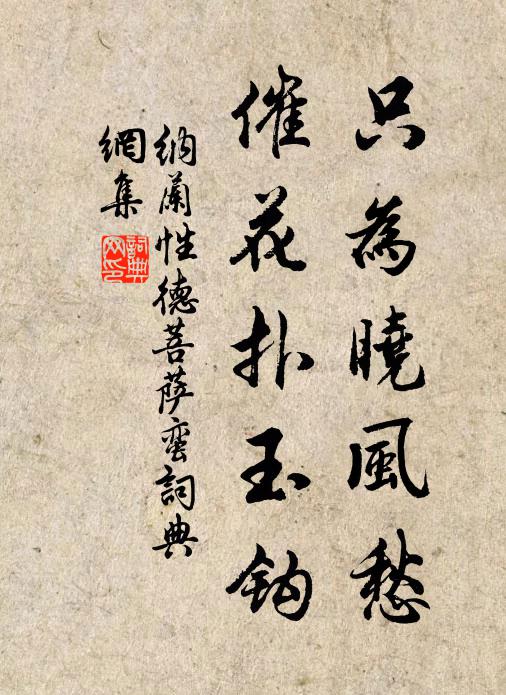 只為曉風愁
催花扑玉鈎
納蘭性德菩薩蛮詞典
網集
詞典
网印